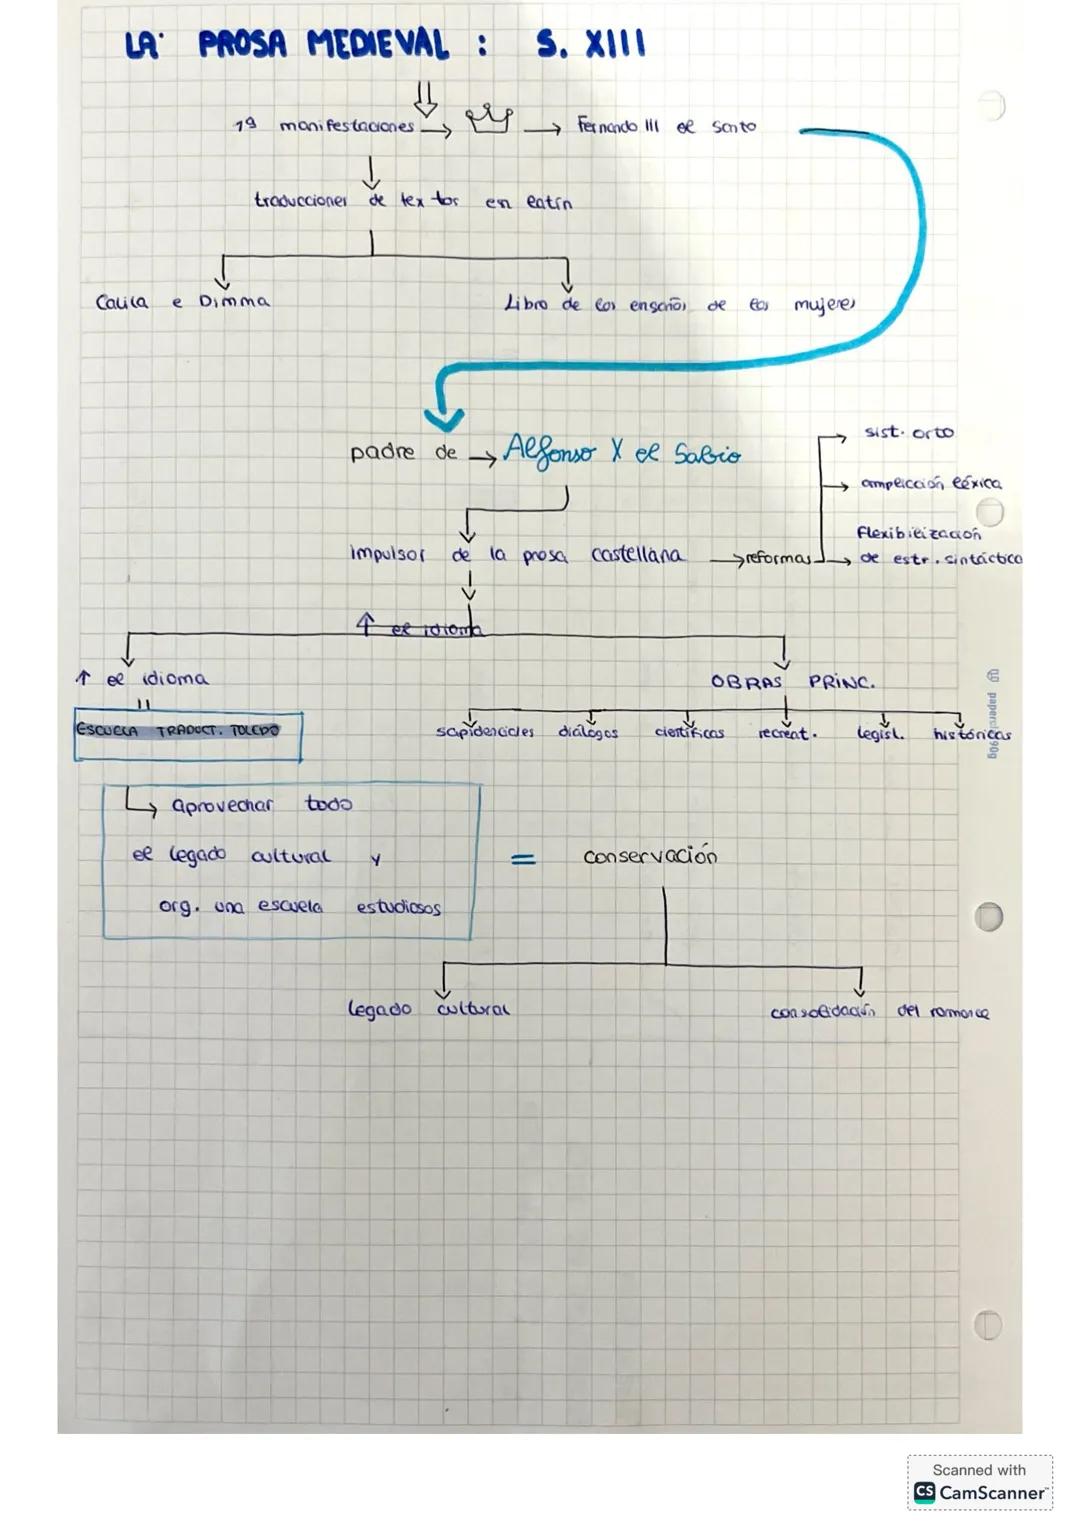 LA PROSA MEDIEVAL : S. XIII
1ª manifestaciones → → Fernando III el Santo
traducciones de textos en latín
Calila e Dimma
Libro de los engaños de las mujeres
padre de → Alfonso X el Sabio
→ sist. orto
→ ampliación léxica
impulsor de la prosa castellana → reformas
Flexibilización
→ de estr. sintáctica
↑ el idioma
↑ el idioma
OBRAS PRINC.
ESCUELA TRADUCT. TOLEDO
diálogos científicas recreat. legisl. históricas
aprovechar todo
el legado cultural y
org. una escuela estudiosos
= conservación
legado cultural
consolidación del romance
paperclip 90g
Scanned with
CS CamScanner